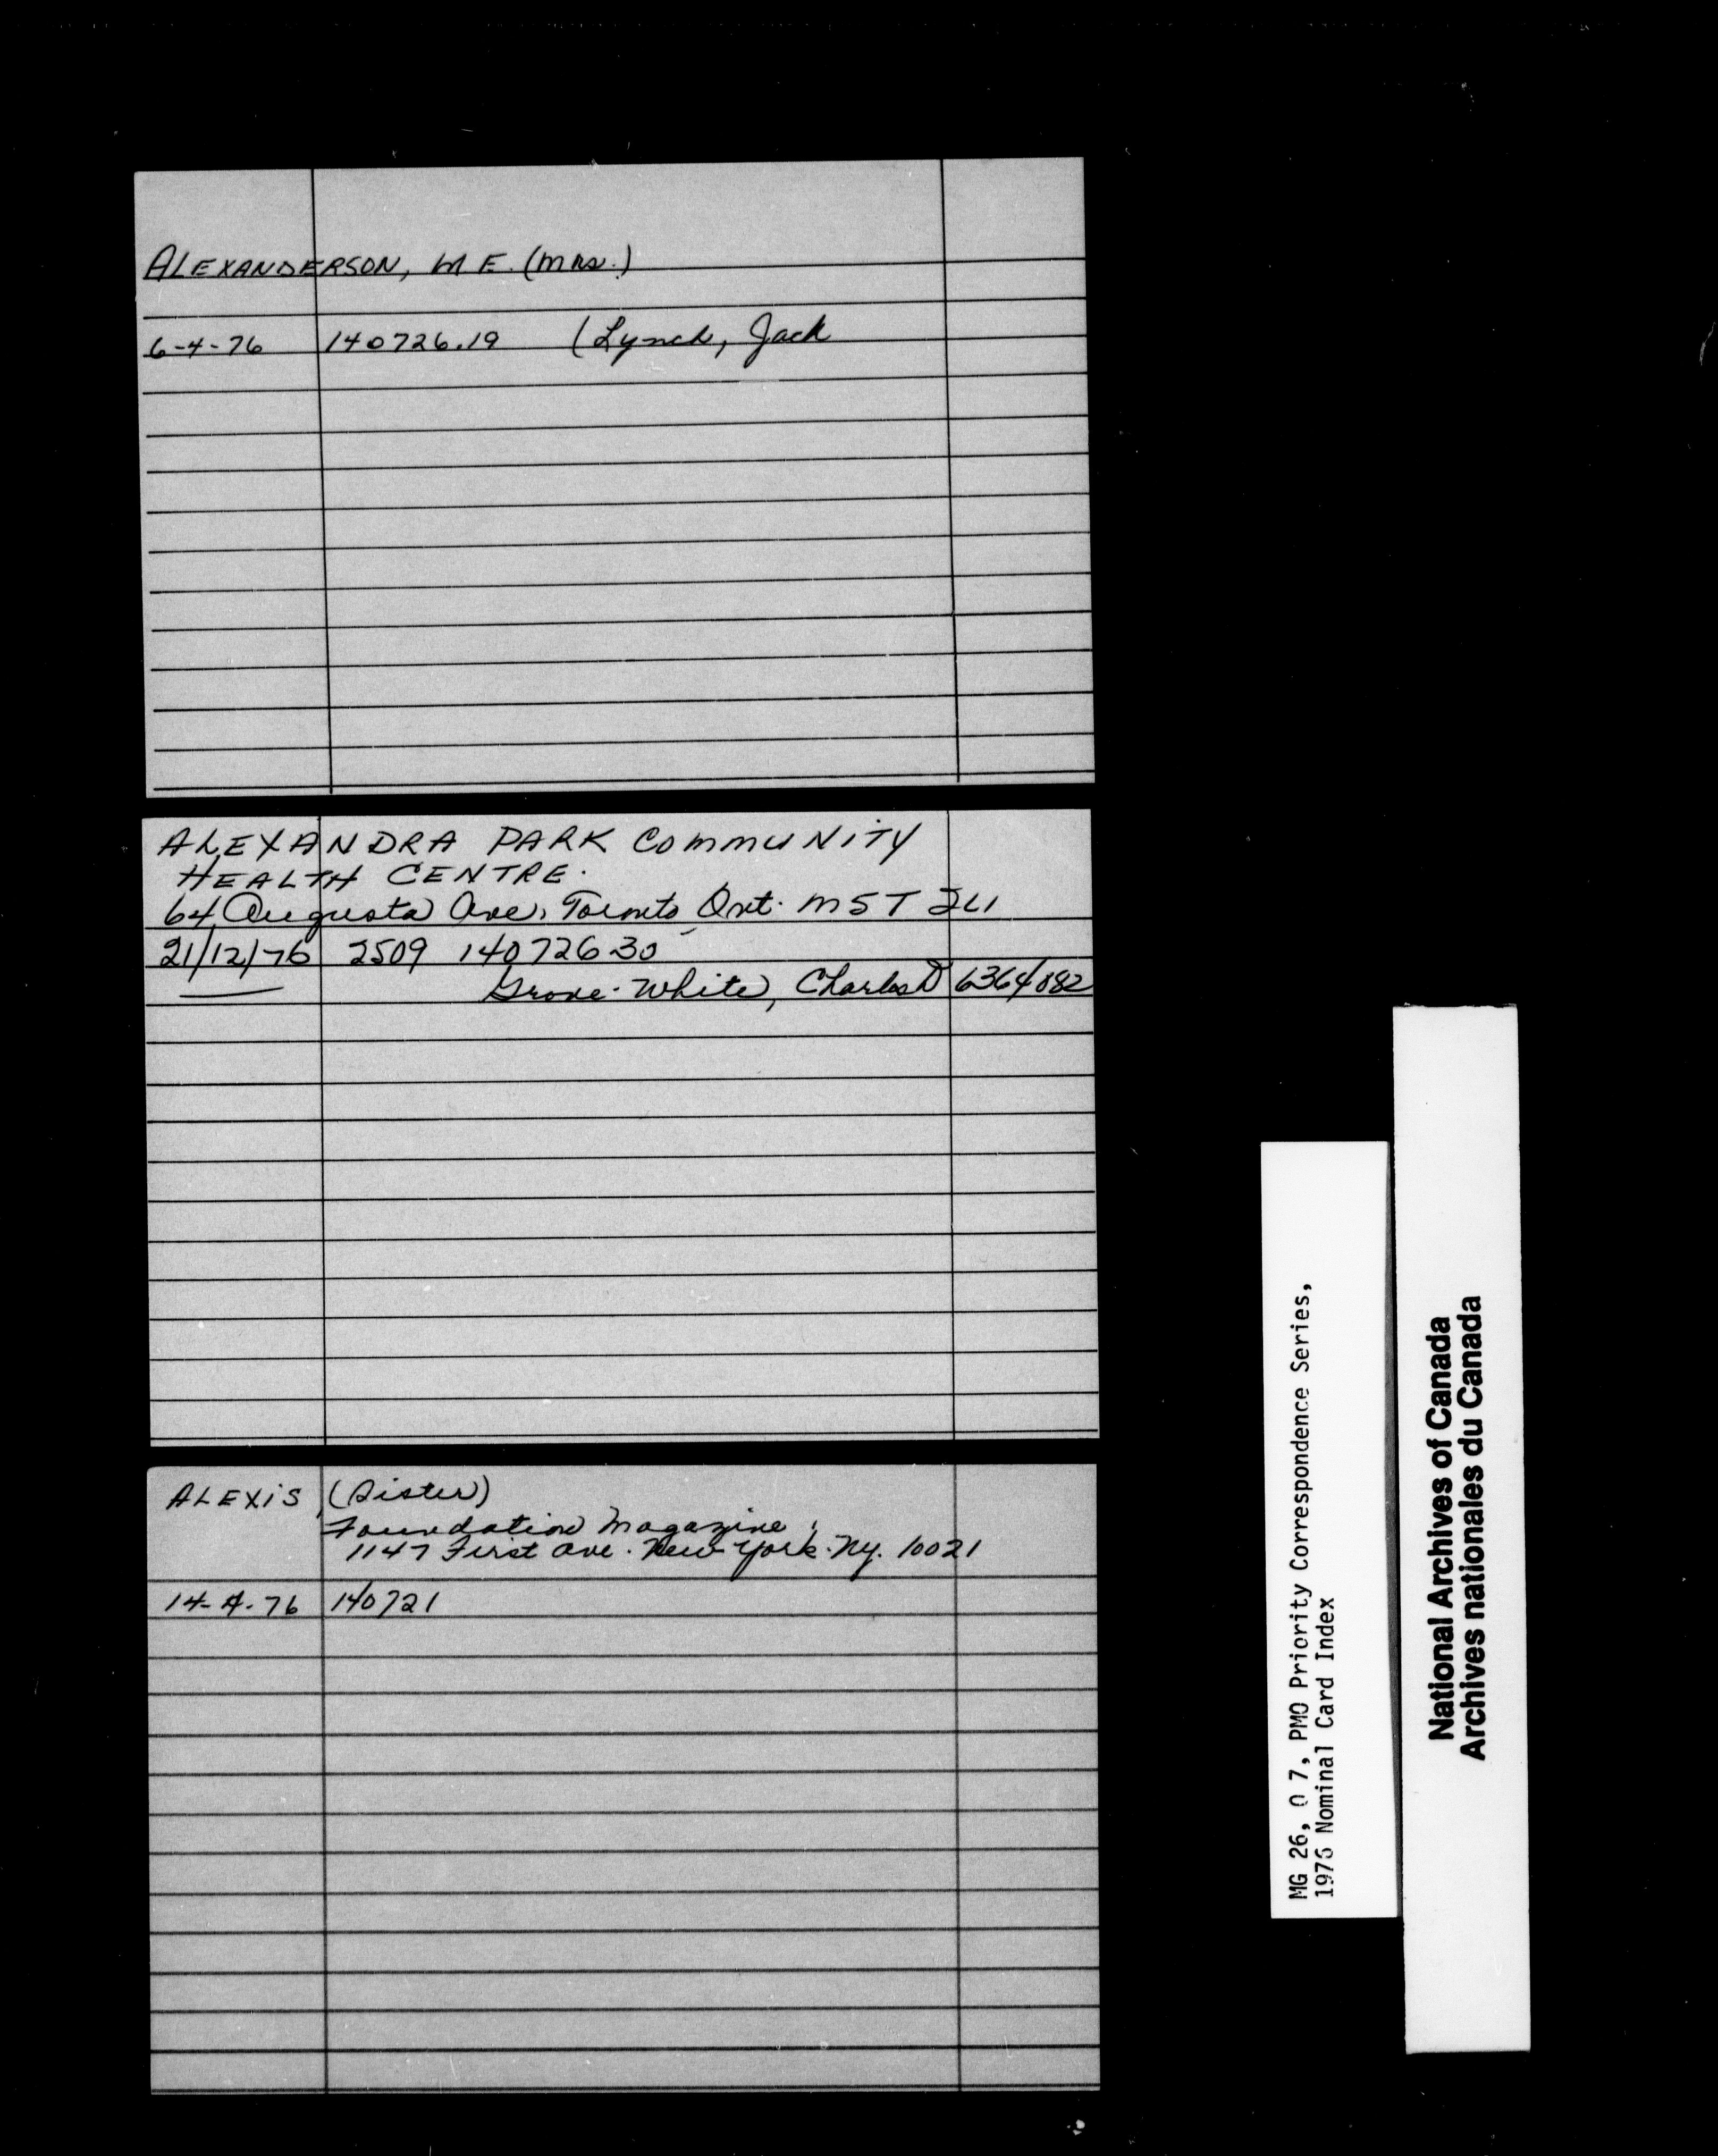 ALEXANDERSON, M E. (Mrs.)
6-4-76 140726.19 (Lynch, Jack
ALEXANDRA PARK COMMUNITY
HEALTH CENTRE.
64 Augusta Ave, Toronto Ont. M5T 2L1
21/12/76 2509 140726 30
Grove-White, Charles D 6364/882
ALEXIS (Sister)
Foundation Magazine,
1147 First Ave. New York. N.Y. 10021
14-4-76 140721
MG 26, O 7, PMO Priority Correspondence Series,
1976 Nominal Card Index
National Archives of Canada
Archives nationales du Canada